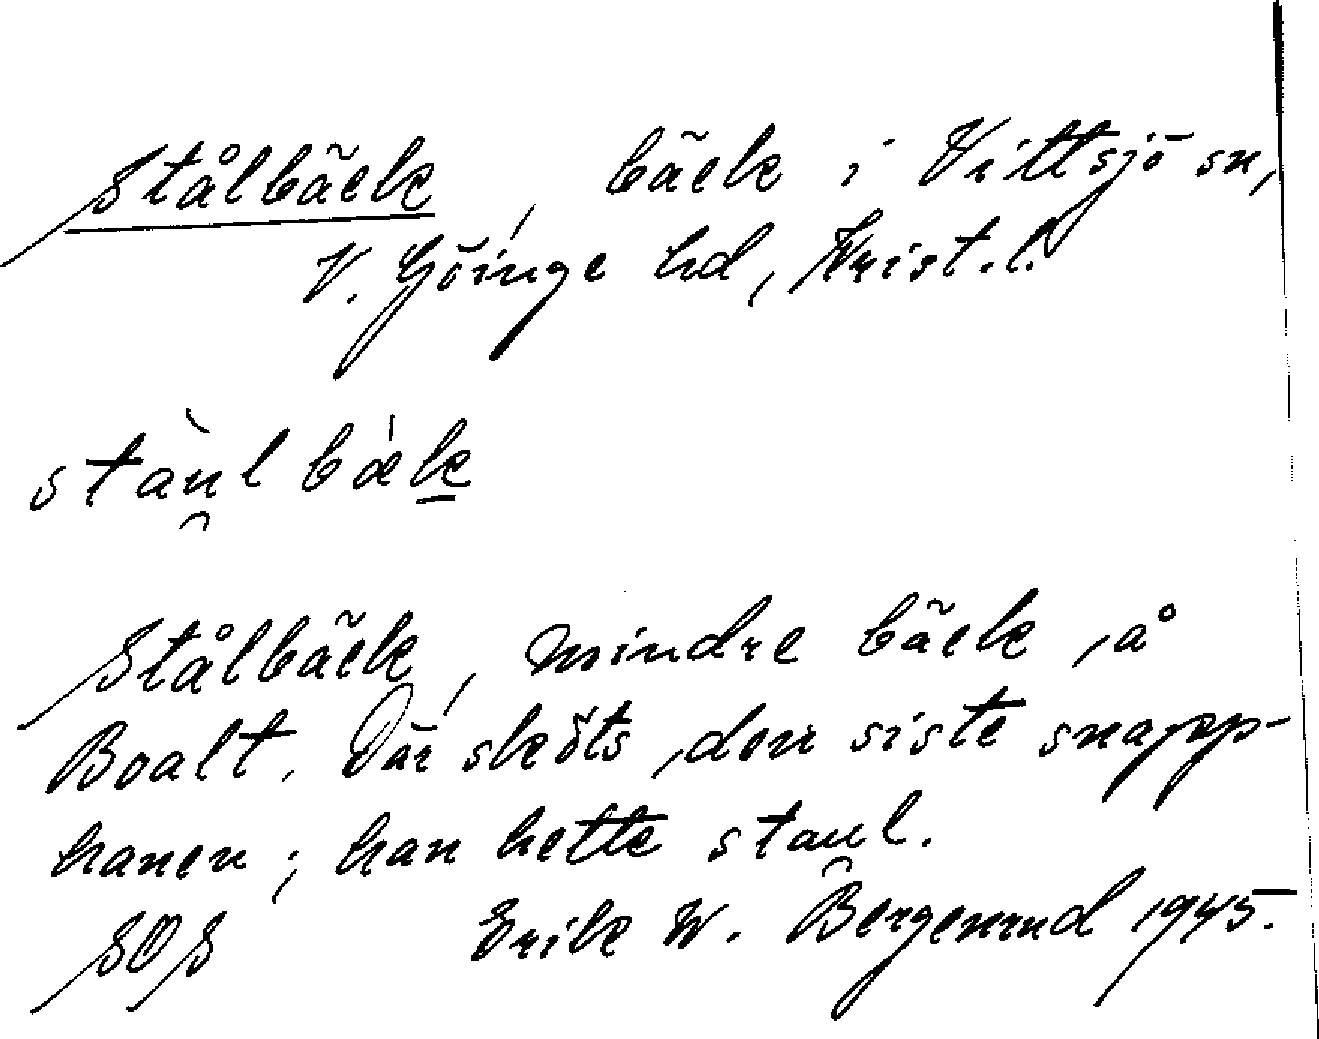 Stålbäck, bäck i Vittsjö sn,
V. Göinge hd, Krist. l.
stàu̯l bæ̀k
Stålbäck, mindre bäck, å
Boalt. Där sköts den siste snapp-
hanen; han hette stau̯l.
SOS Erik W. Bergenrud 1945.